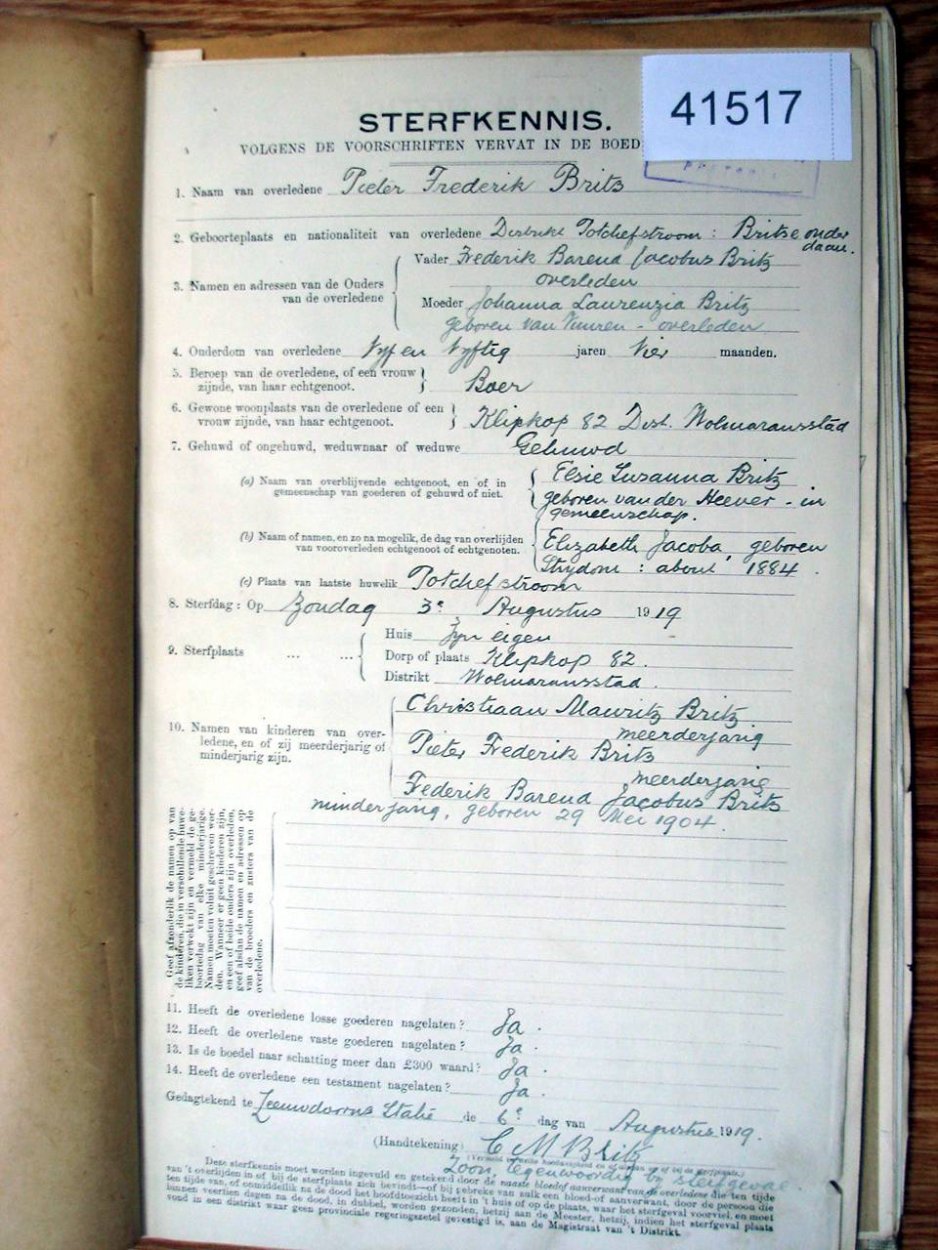 41517
STERFKENNIS.
VOLGENS DE VOORSCHRIFTEN VERVAT IN DE BOED
1. Naam van overledene Pieter Frederik Brits
2. Geboorteplaats en nationaliteit van overledene Distrikt Potchefstroom : Britse onder
daan.
3. Namen en adressen van de Ouders
van de overledene
Vader Frederik Barend Jacobus Britz
overleden
Moeder Johanna Laurenzia Britz
geboren van Vuuren - overleden
4. Onderdom van overledene Vyf en Vyftig jaren Vier maanden.
5. Beroep van de overledene, of een vrouw
zijnde, van haar echtgenoot. Boer
6. Gewone woonplaats van de overledene of een
vrouw zijnde, van haar echtgenoot. Klipkop 82 Dist. Wolmaransstad
7. Gehuwd of ongehuwd, weduwnaar of weduwe Gehuwd
(a) Naam van overblijvende echtgenoot, en of in
gemeenschap van goederen of gehuwd of niet.
Elsie Susanna Britz
geboren van der Heever - in
gemeenschap.
(b) Naam of namen, en zo na mogelik, de dag van overlijden
van vooroverleden echtgenoot of echtgenoten.
Elizabeth Jacoba, geboren
Strydom : about 1884.
(c) Plaats van laatste huwelik Potchefstroom
8. Sterfdag : Op Zondag 3e Augustus 1919
9. Sterfplaats ... ...
Huis Zyn eigen
Dorp of plaats Klipkop 82.
Distrikt Wolmaransstad.
10. Namen van kinderen van over-
ledene, en of zij meerderjarig of
minderjarig zijn.
Christiaan Mauritz Britz
meerderjarig
Pieter Frederik Brits
meerderjarig
Frederik Barend Jacobus Brits
minderjarig, geboren 29 Mei 1904.
Geef afzonderlik de namen op van
de kinderen, die in verschillende huwe-
liken verwekt zijn en vermeld de ge-
boortedag van elke minderjarige.
Namen moeten voluit geschreven wor-
den. Wanneer er geen kinderen zijn,
en een of beide ouders zijn overleden,
geef alsdan de namen en adressen op
van de broeders en zusters van de
overledene.
11. Heeft de overledene losse goederen nagelaten? Ja.
12. Heeft de overledene vaste goederen nagelaten? Ja.
13. Is de boedel naar schatting meer dan £300 waard? Ja.
14. Heeft de overledene een testament nagelaten? Ja.
Gedagtekend te Leeuwdoorns Statie de 6e dag van Augustus 1919.
(Handtekening) C M Britz
Zoon, tegenwoordig by sterfgeval
Deze sterfkennis moet worden ingevuld en getekend door de naaste bloedof aanverwant van de overledene die ten tijde
van 't overlijden in of bij de sterfplaats zich bevindt—of bij gebreke van zulk een bloed-of aanverwant, door de persoon die
ten tijde van, of onmiddellik na de dood het hoofdtoezicht heeft in 't huis of op de plaats, waar het sterfgeval voorviel, en moet
binnen veertien dagen na de dood, in dubbel, worden gezonden, hetzij aan de Meester, hetzij, indien het sterfgeval plaats
vond in een distrikt waar geen provinciale regeringszetel gevestigd is, aan de Magistraat van 't Distrikt.